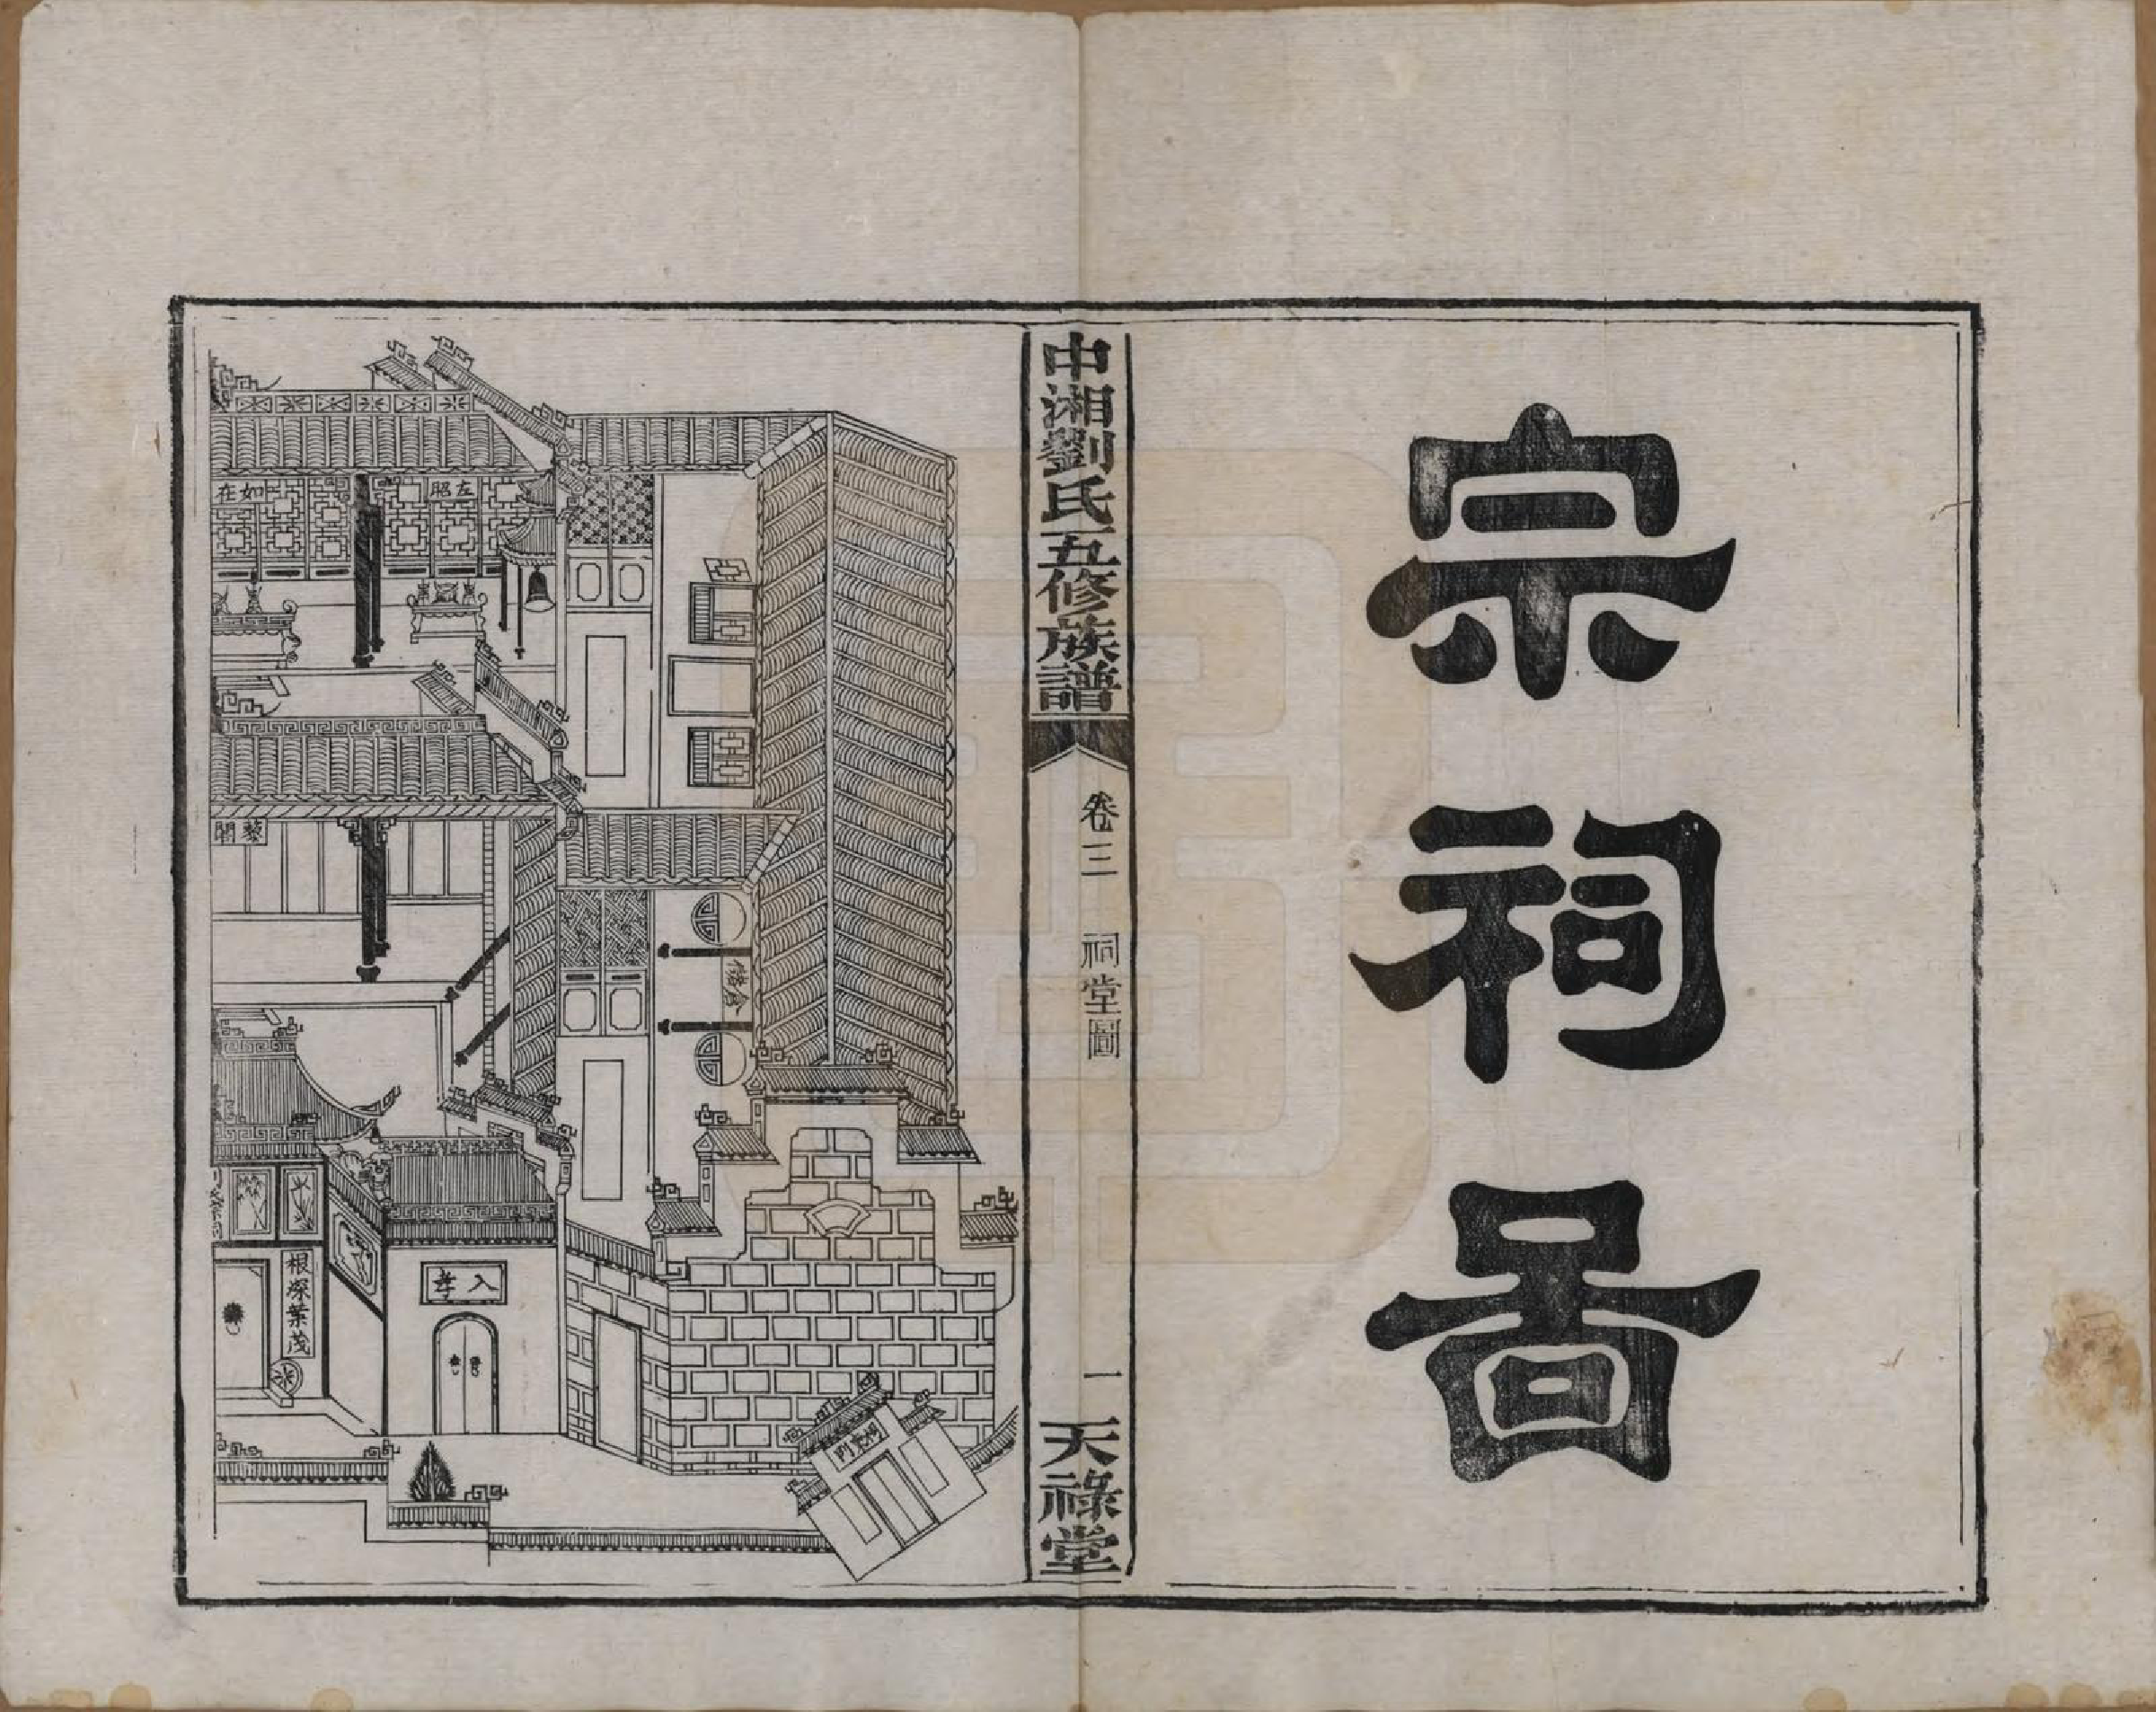 宗祠啚
中湘劉氏五修族譜
卷三
祠堂圖
一
天祿堂
左昭
如在
入孝
根深葉茂